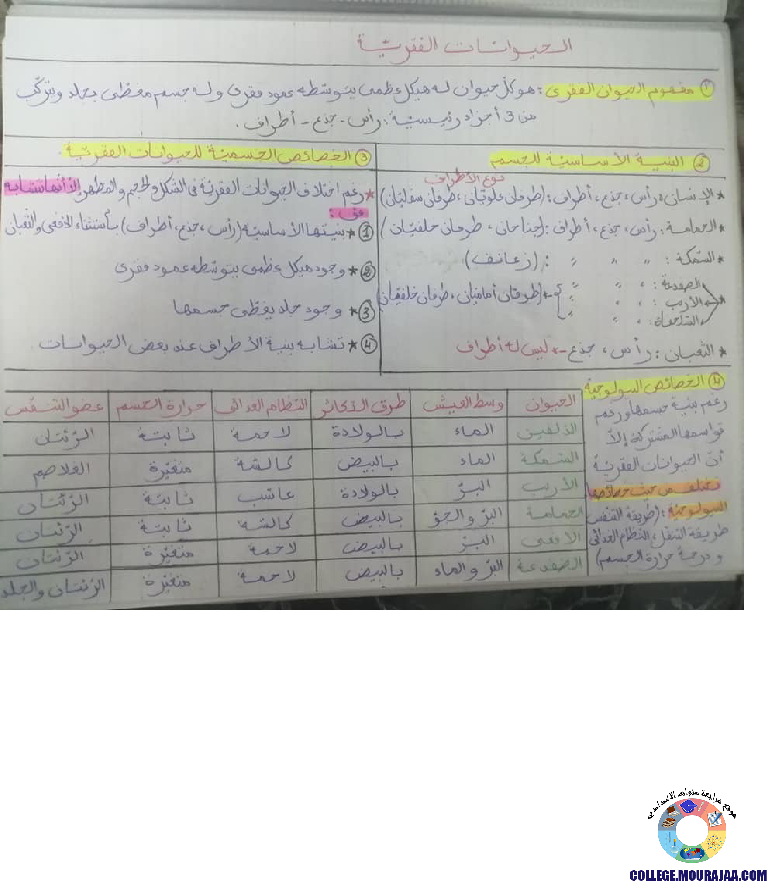 الحيوانات الفقريّة
① مفهوم الحيوان الفقري : هو كل حيوان له هيكل عظمي يتوسّطه عمود فقري وله جسم مغطى بجلد ويتركّب
من 3 أجزاء رئيسيّة : رأس - جذع - أطراف .
② البنية الأساسية للجسم
نوع الأطراف
* الإنسان : رأس ، جذع ، أطراف : (طرفان علويّان ، طرفان سفليّان)
* الحمامة : رأس ، جذع ، أطراف : (جناحان ، طرفان خلفيّان)
* السّمكة : " " " : (زعانف)
* الضفدعة : " " "
الأرنب : " " " (طرفان أماميّان ، طرفان خلفيّان)
السّلحفاة : " " "
* الثّعبان : رأس ، جذع ← ليس له أطراف
③ الخصائص الجسميّة للحيوانات الفقريّة :
* رغم اختلاف الحيوانات الفقريّة في الشّكل والحجم والمظهر إلاّ أنّها تتشابه
في :
① * بنيتها الأساسيّة (رأس ، جذع ، أطراف) باستثناء الأفعى والثّعبان
② * وجود هيكل عظمي يتوسّطه عمود فقري
③ * وجود جلد يغطّي جسمها
④ * تشابه بنية الأطراف عند بعض الحيوانات .
④ الخصائص البيولوجيّة
رغم بنية جسمها ورغم
قواسمها المشتركة إلاّ
أنّ الحيوانات الفقريّة
تختلف من حيث خصائصها
البيولوجيّة : (طريقة التنفّس
طريقة التنقل ، النّظام الغذائي
و درجة حرارة الجسم)
الحيوان وسط العيش طرق التّكاثر النّظام الغذائي حرارة الجسم عضو التنفّس
الدّلفين الماء بالولادة لاحمة ثابتة الرّئتان
السّمكة الماء بالبيض كالشة متغيّرة الغلاصم
الأرنب البرّ بالولادة عاشب ثابتة الرّئتان
الحمامة البرّ والجوّ بالبيض كالشة ثابتة الرّئتان
الأفعى البرّ بالبيض لاحمة متغيّرة الرّئتان
الضفدعة البرّ والماء بالبيض لاحمة متغيّرة الرّئتان والجلد
موقع مراجعة
COLLEGE.MOURAJAA.COM